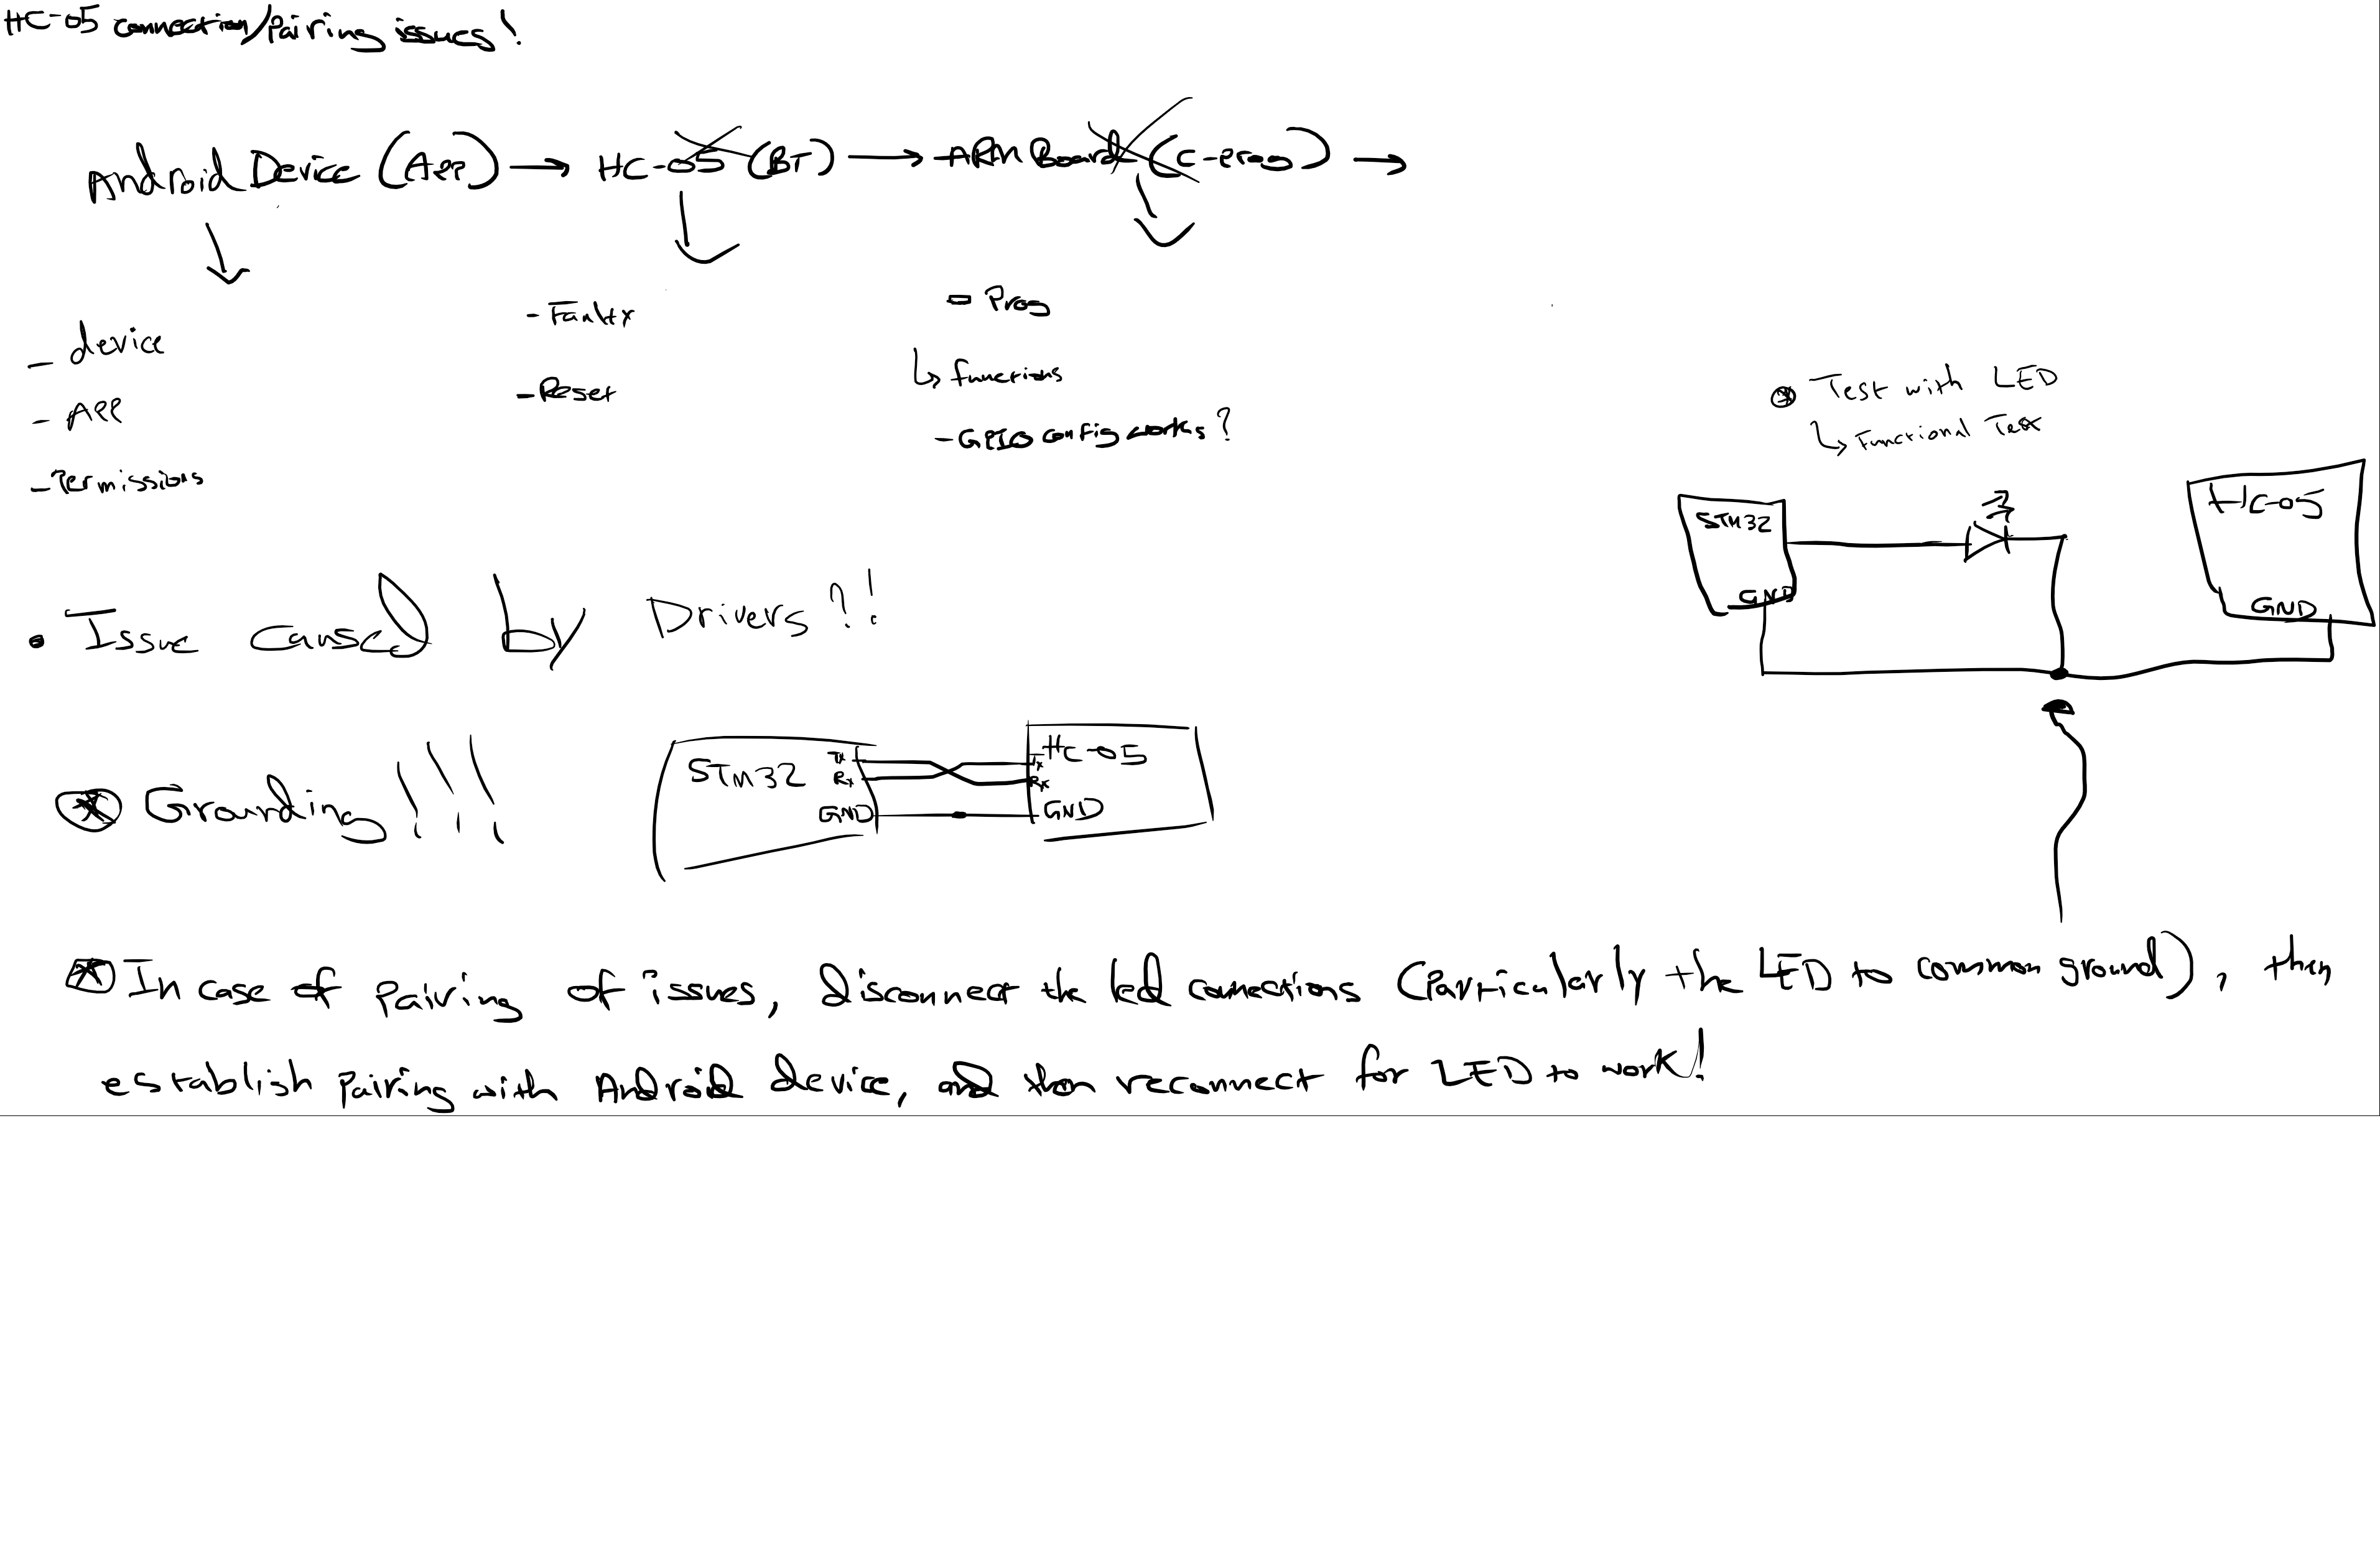 HC-05 connection/Pairing issues!
Android Device (App) → HC-05 (BT) → ARM Board (C-prog) →
- device
- APP
- Permissions
- Faulty
- Reset
- Prog
↳ functions
- GPIO config works?
⊛ Test with LED
↳ Functional Test
STM32
GND
HC-05
GND
• Issue caused by Drivers?!
⊛ Grounding!!!
STM32
Tx
Rx
GND
HC-05
Tx
Rx
GND
⊛ In case of pairing of issues, Disconnect the led connections (Particularly the LED to common ground), then
establish pairing with Android device, and then reconnect for LED to work!